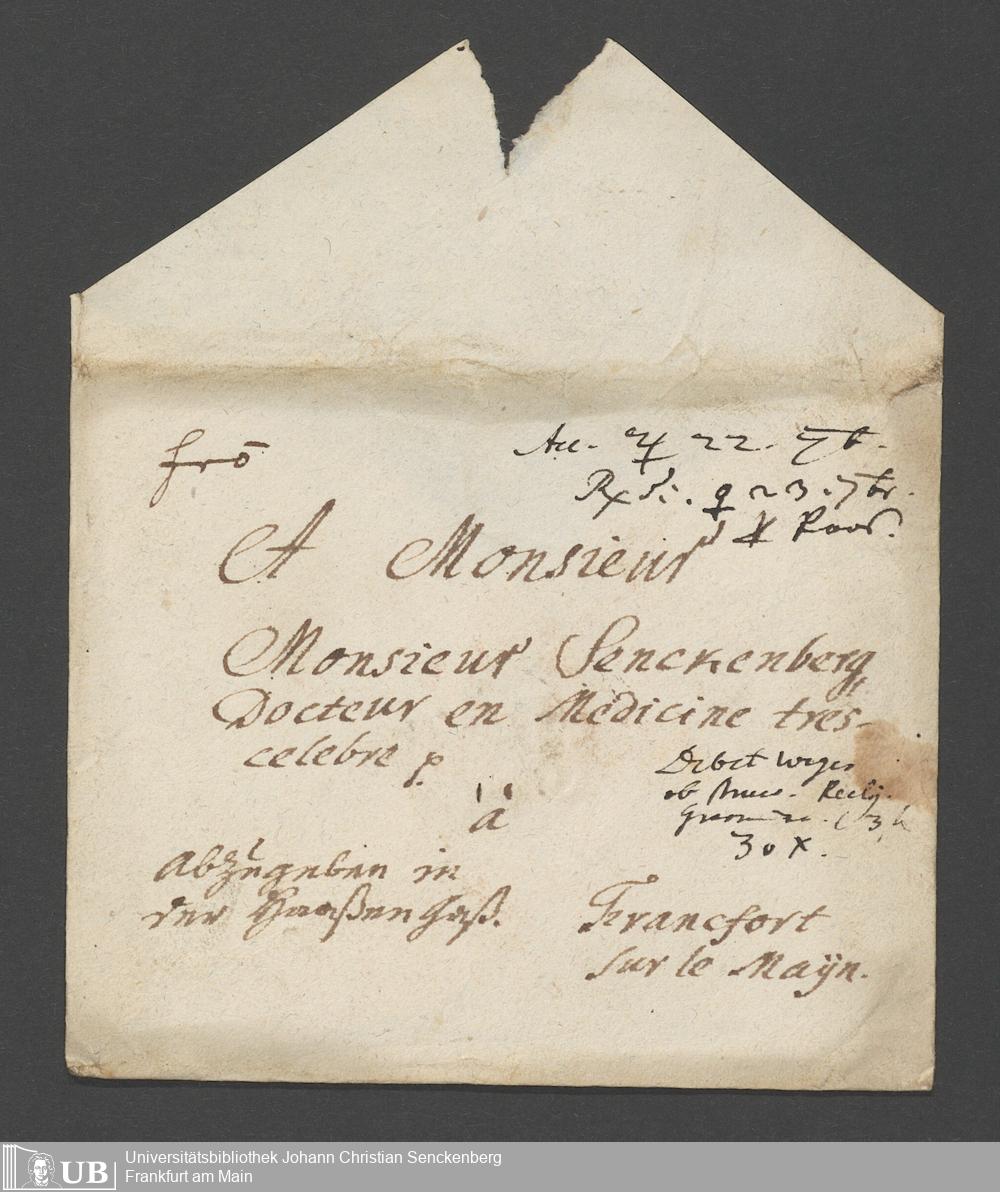 frō
Acc. ♃ 22. 7b.
Rx di. ♀ 23. 7br.
A Monsieur
Monsieur Senckenberg
Docteur en Medicine tres-
celebre p.
à
Debet wegen
ob
30 x.
abzugeben in
der Haaßengaß.
Francfort
sur le Maÿn.
UB
Universitätsbibliothek Johann Christian Senckenberg
Frankfurt am Main